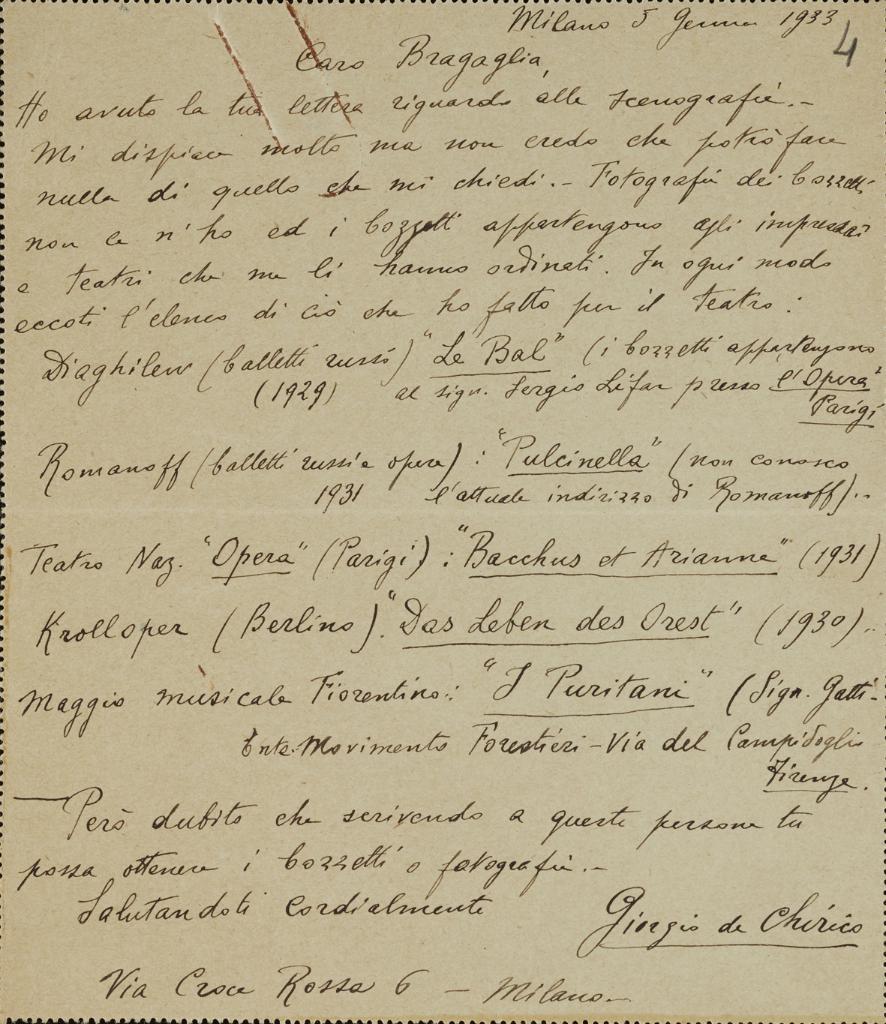 Milano 5 Gennaio 1933
4
Caro Bragaglia,
Ho avuto la tua lettera riguardo alle scenografie.-
Mi dispiace molto ma non credo che potrò fare
nulla di quello che mi chiedi.- Fotografie dei bozzetti
non ce n'ho ed i bozzetti appartengono agli impresari
e teatri che me li hanno ordinati. In ogni modo
eccoti l'elenco di ciò che ho fatto per il teatro:
Diaghilew (balletti russi) "Le Bal" (i bozzetti appartengono
(1929) al sign. Sergio Lifar presso l'Opera"
Parigi
Romanoff (balletti russi e opera): "Pulcinella" (non conosco
1931 l'attuale indirizzo di Romanoff).-
Teatro Naz. "Opera" (Parigi): "Bacchus et Arianne" (1931)
Krolloper (Berlino). "Das Leben des Orest" (1930).-
Maggio musicale Fiorentino: "I Puritani" (Sign. Gatti-
Ente Movimento Forestieri - Via del Campidoglio
Firenze.
Però dubito che scrivendo a queste persone tu
possa ottenere i bozzetti o fotografie.-
Salutandoti cordialmente
Giorgio de Chirico
Via Croce Rossa 6 - Milano-